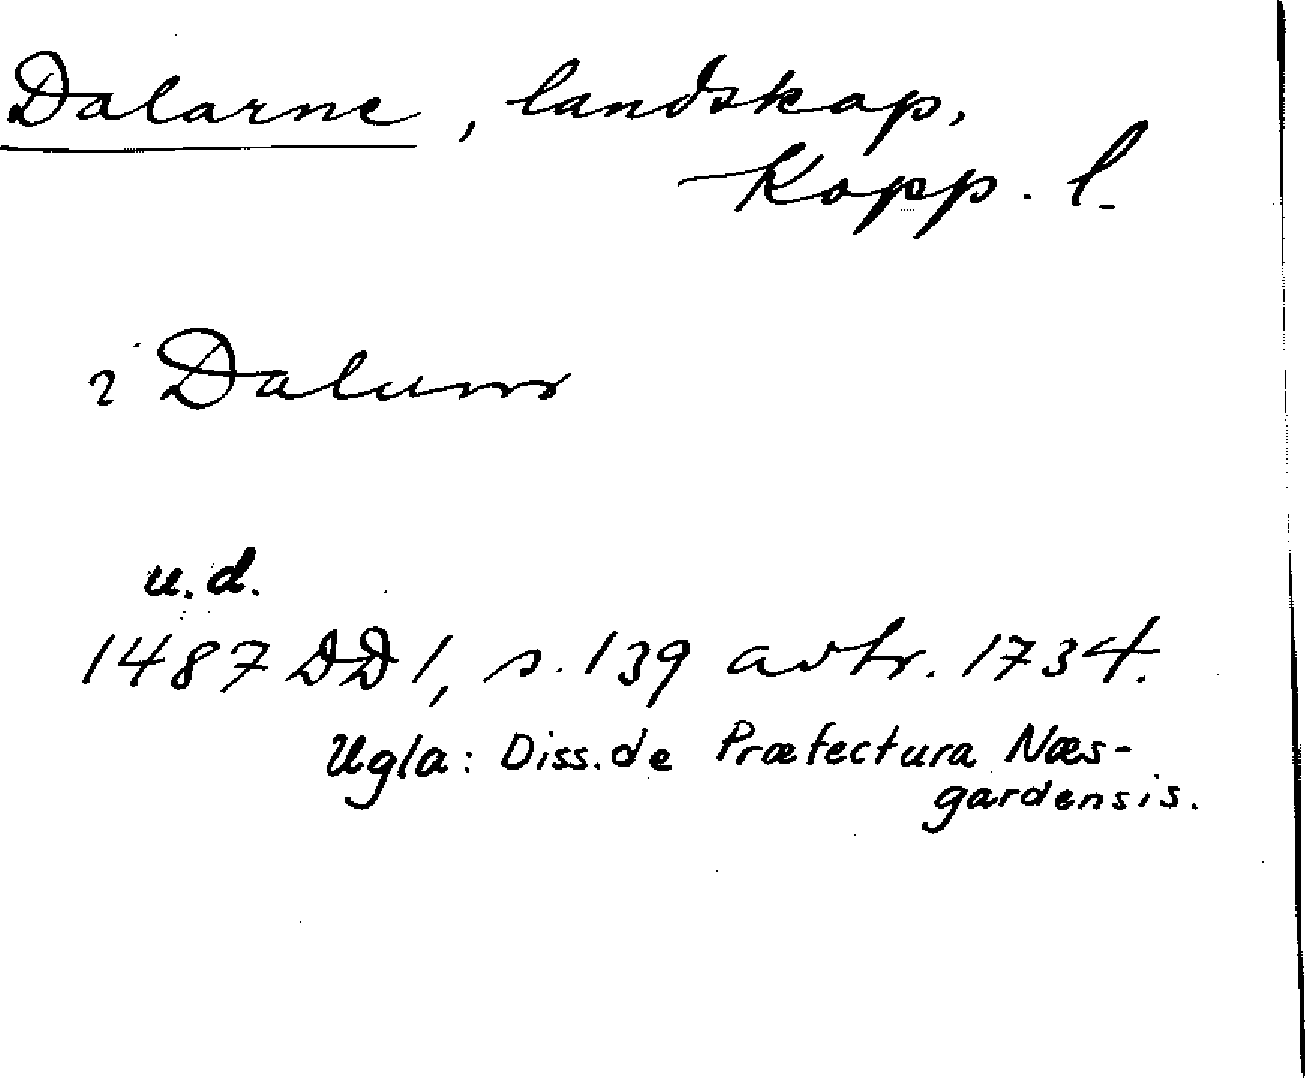 Dalarne, landskap,
Kopp. l.
i Dalum
u.d.
1487 DD 1, s. 139 avtr. 1734.
Ugla: Diss. de Præfectura Næs-
gardensis.